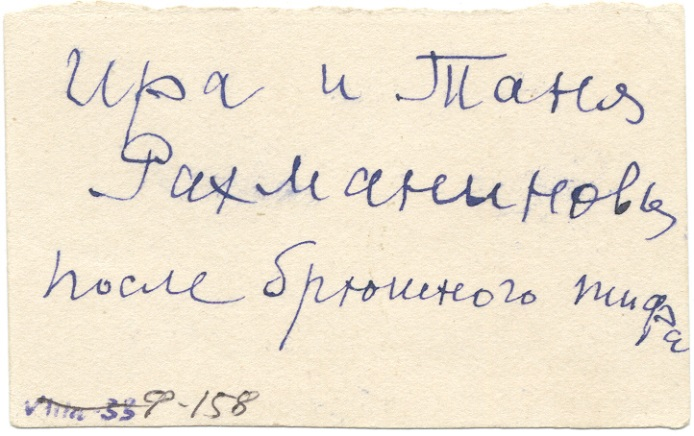 Ира и Таня
Рахманиновы
после брюшного тифа
Ф-158